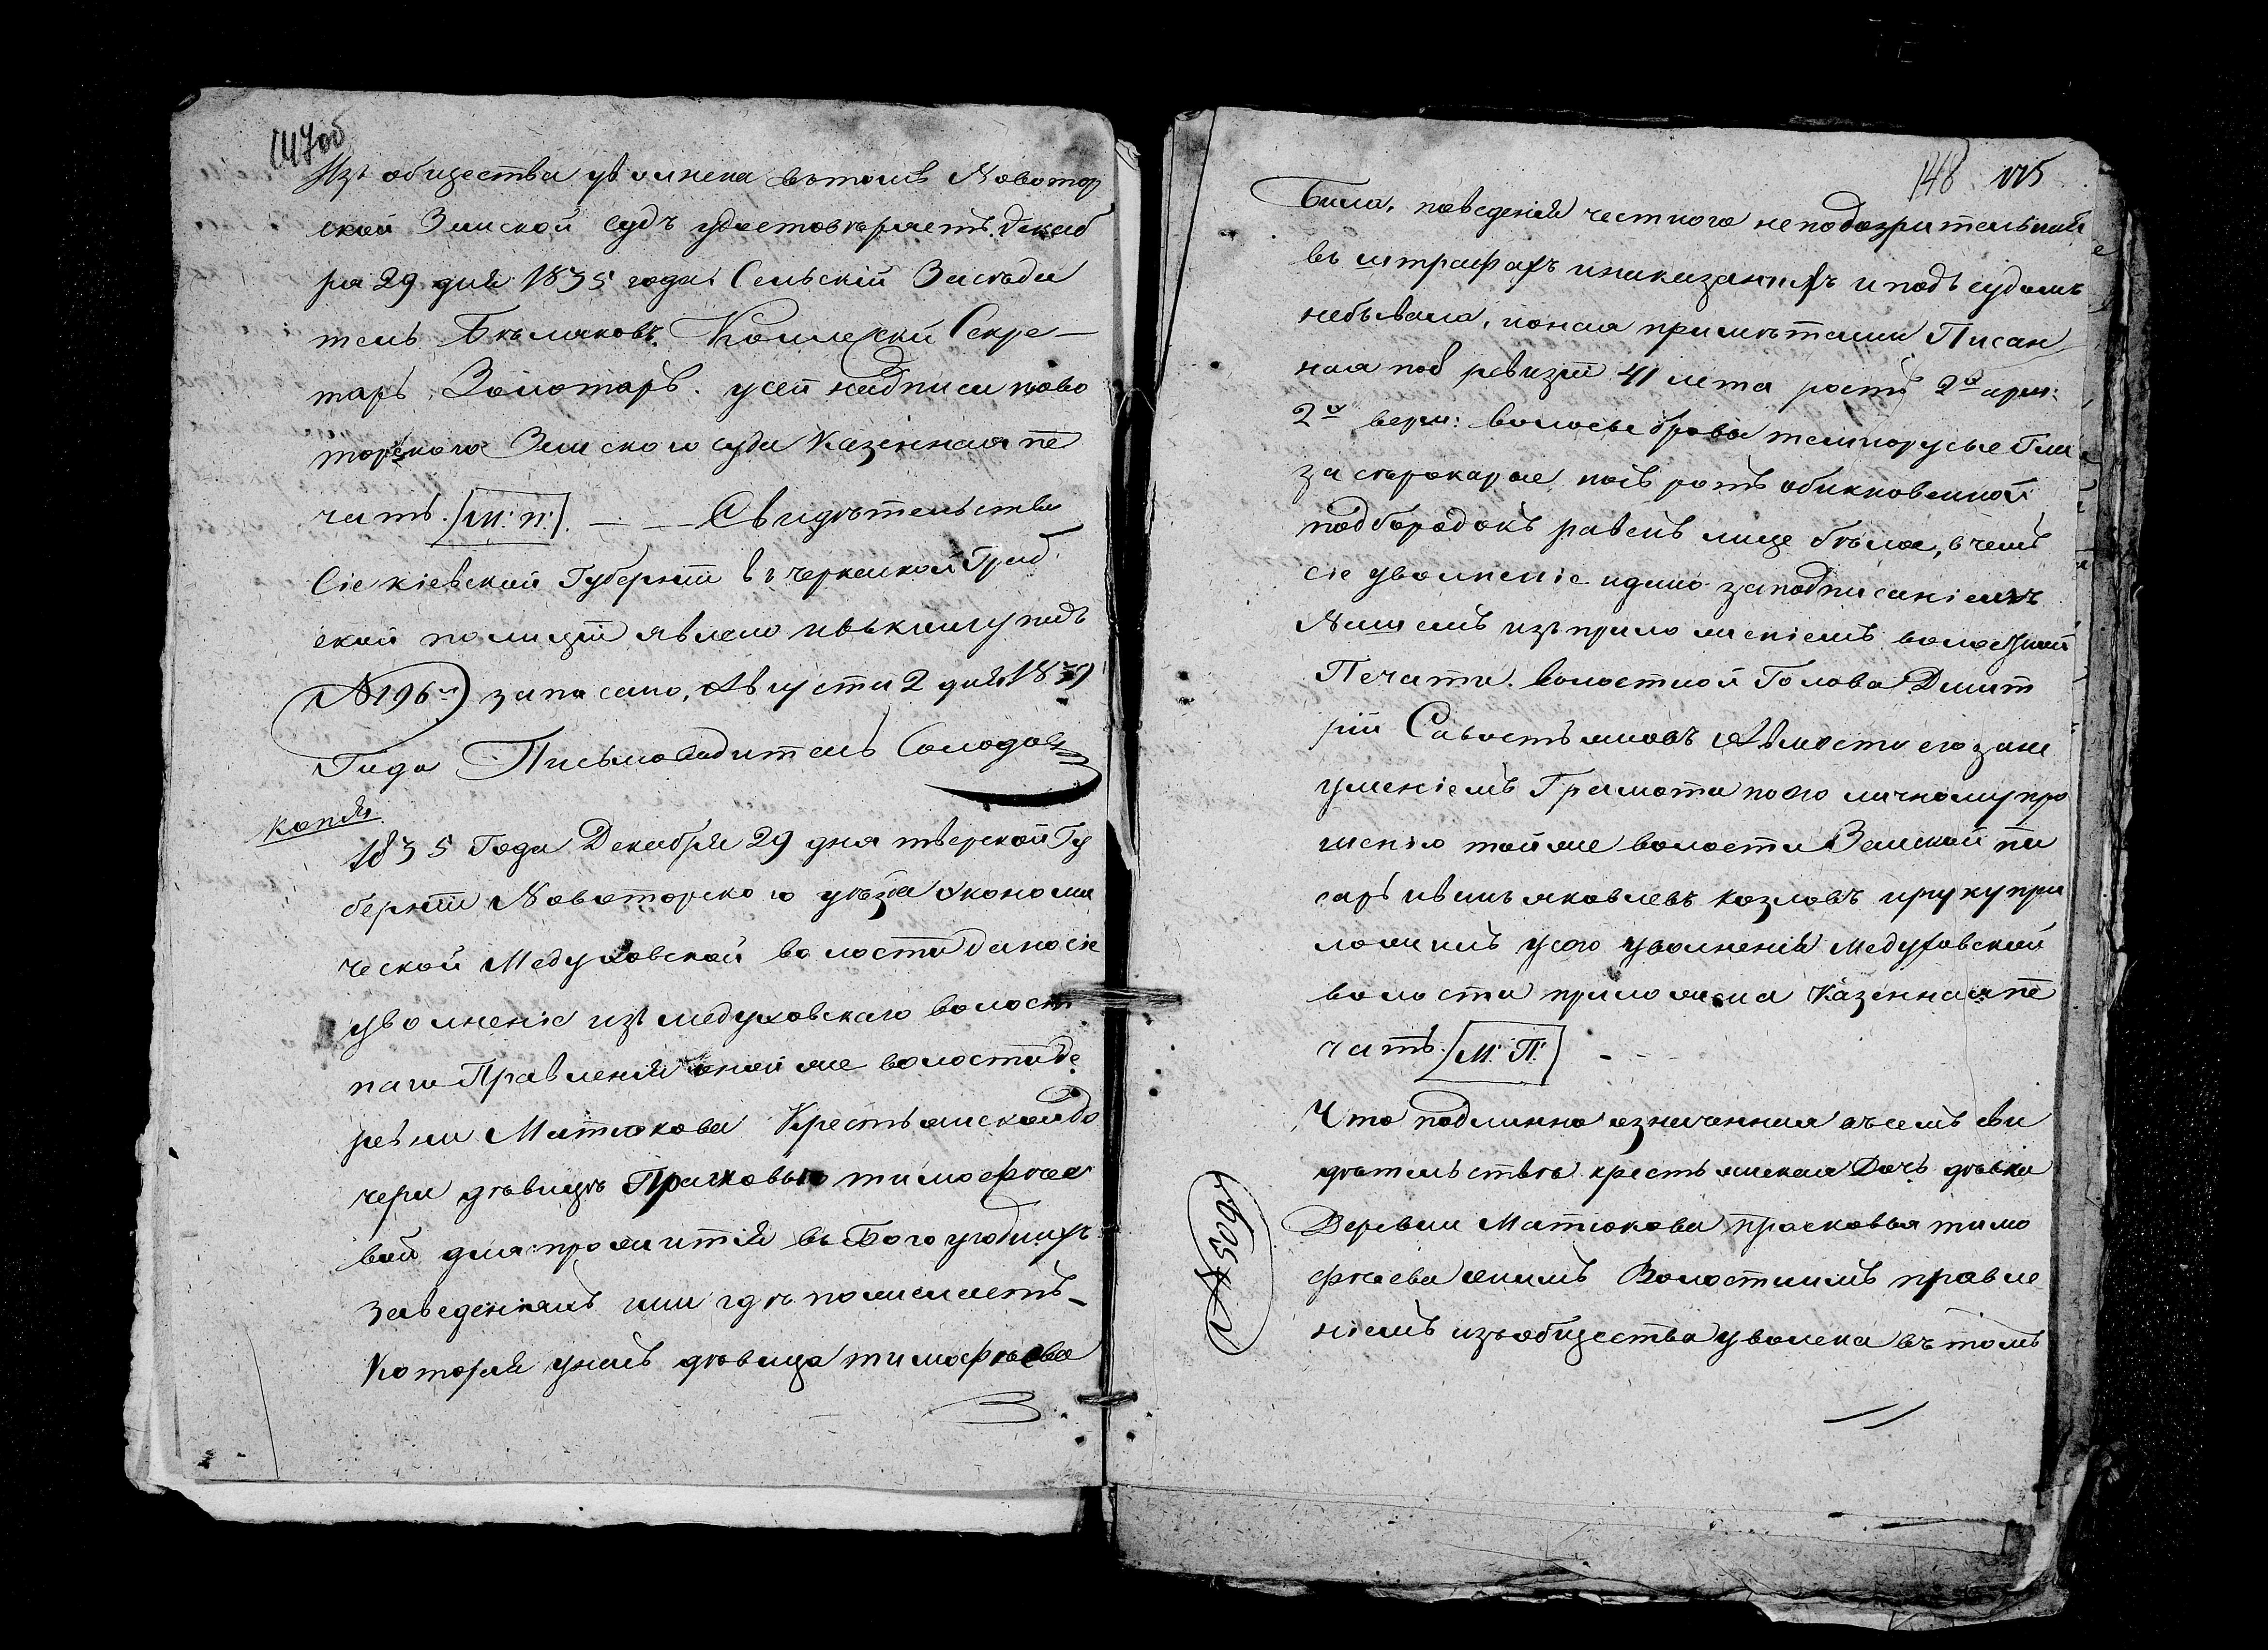 147об
Изъ общества уволнена въ томъ Новотор
ской Земской Судъ удостовѣряетъ. Декаб
ря 29 дня 1835 года. Сельскій Засѣда
тель Бѣляковъ. Коллежскій Секре–
тарь Золотарь. у сей надписи Ново
торскаго Земскаго суда Казенная пе
чать. М: П: — — Свидѣтельство
Сіе кіевской Губерніи в г черкаской Град
ской полиціи явлено и въ книгу подъ
№ 196 записано, Августа 2 дня 1839
Года Письмоводитель Солодов
копія
1835 Года Декабря 29 дня тверской Гу
берніи Новоторскаго уѣзда Экономи
ческой Медуховской волости дано сіе
уволненіе изъ медуховскаго волост
наго Правленія оной же волости де
ревни Матюкова Крестьянской до
чери дѣвицѣ Прасковьѣ тимофѣев
вой для прожитія въ Богоугодныхъ
заведеніямъ или гдѣ пожелаетъ_
Которая унасъ дѣвица тимофѣева
148 115
Была, поведенія честнаго неподозрительная
въ штрафахъ инаказаніяхъ и подъ судомъ
небывала, и оная примѣтами Писан
ная под ревизіи 41 лета ростъ 2 арш:
2 верш: волосы брови темнорусые Гла
за сѣрокарые, носъ ротъ обикновенной
подбородокъ равенъ лице бѣлое, в чемъ
сіе уволненіе и дано заподписаніемъ
Нашемъ изъприложеніемъ волостной
Печати. Волостной Голова Дмит
рій Савостьяновъ Авместо его зане
уменіемъ Грамоты по его личному про
шенію той же волости Земской пи
сарь иванъ яковлевъ козловъ ируку при
ложилъ у сего уволненія Медуховской
волости приложена Казенная пе
чать. М: П: - - -
Что подлинно означенная въ семъ сви
дѣтельствѣ крестьянская Дочь дѣвка
Деревни Матюкова прасковья тимо
фѣева онымъ Волостнымъ правле
ніемъ изъ общества уволена въ томъ
№ 5097